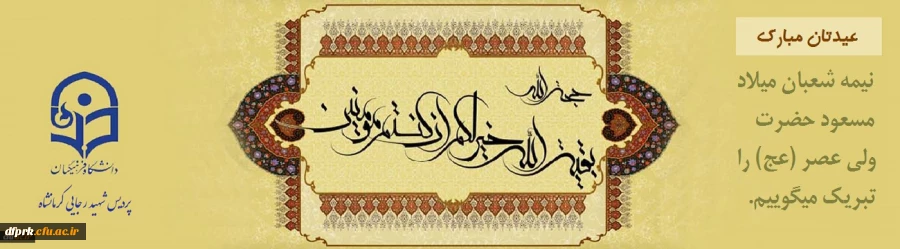 عیدتان مبارک
نیمه شعبان میلاد
مسعود حضرت
ولی عصر (عج) را
تبریک میگوییم.
حجة الله
بقیت الله خیر لکم ان کنتم مؤمنین
دانشگاه فرهنگیان
پردیس شهید رجایی کرمانشاه
dfprk.cfu.ac.ir